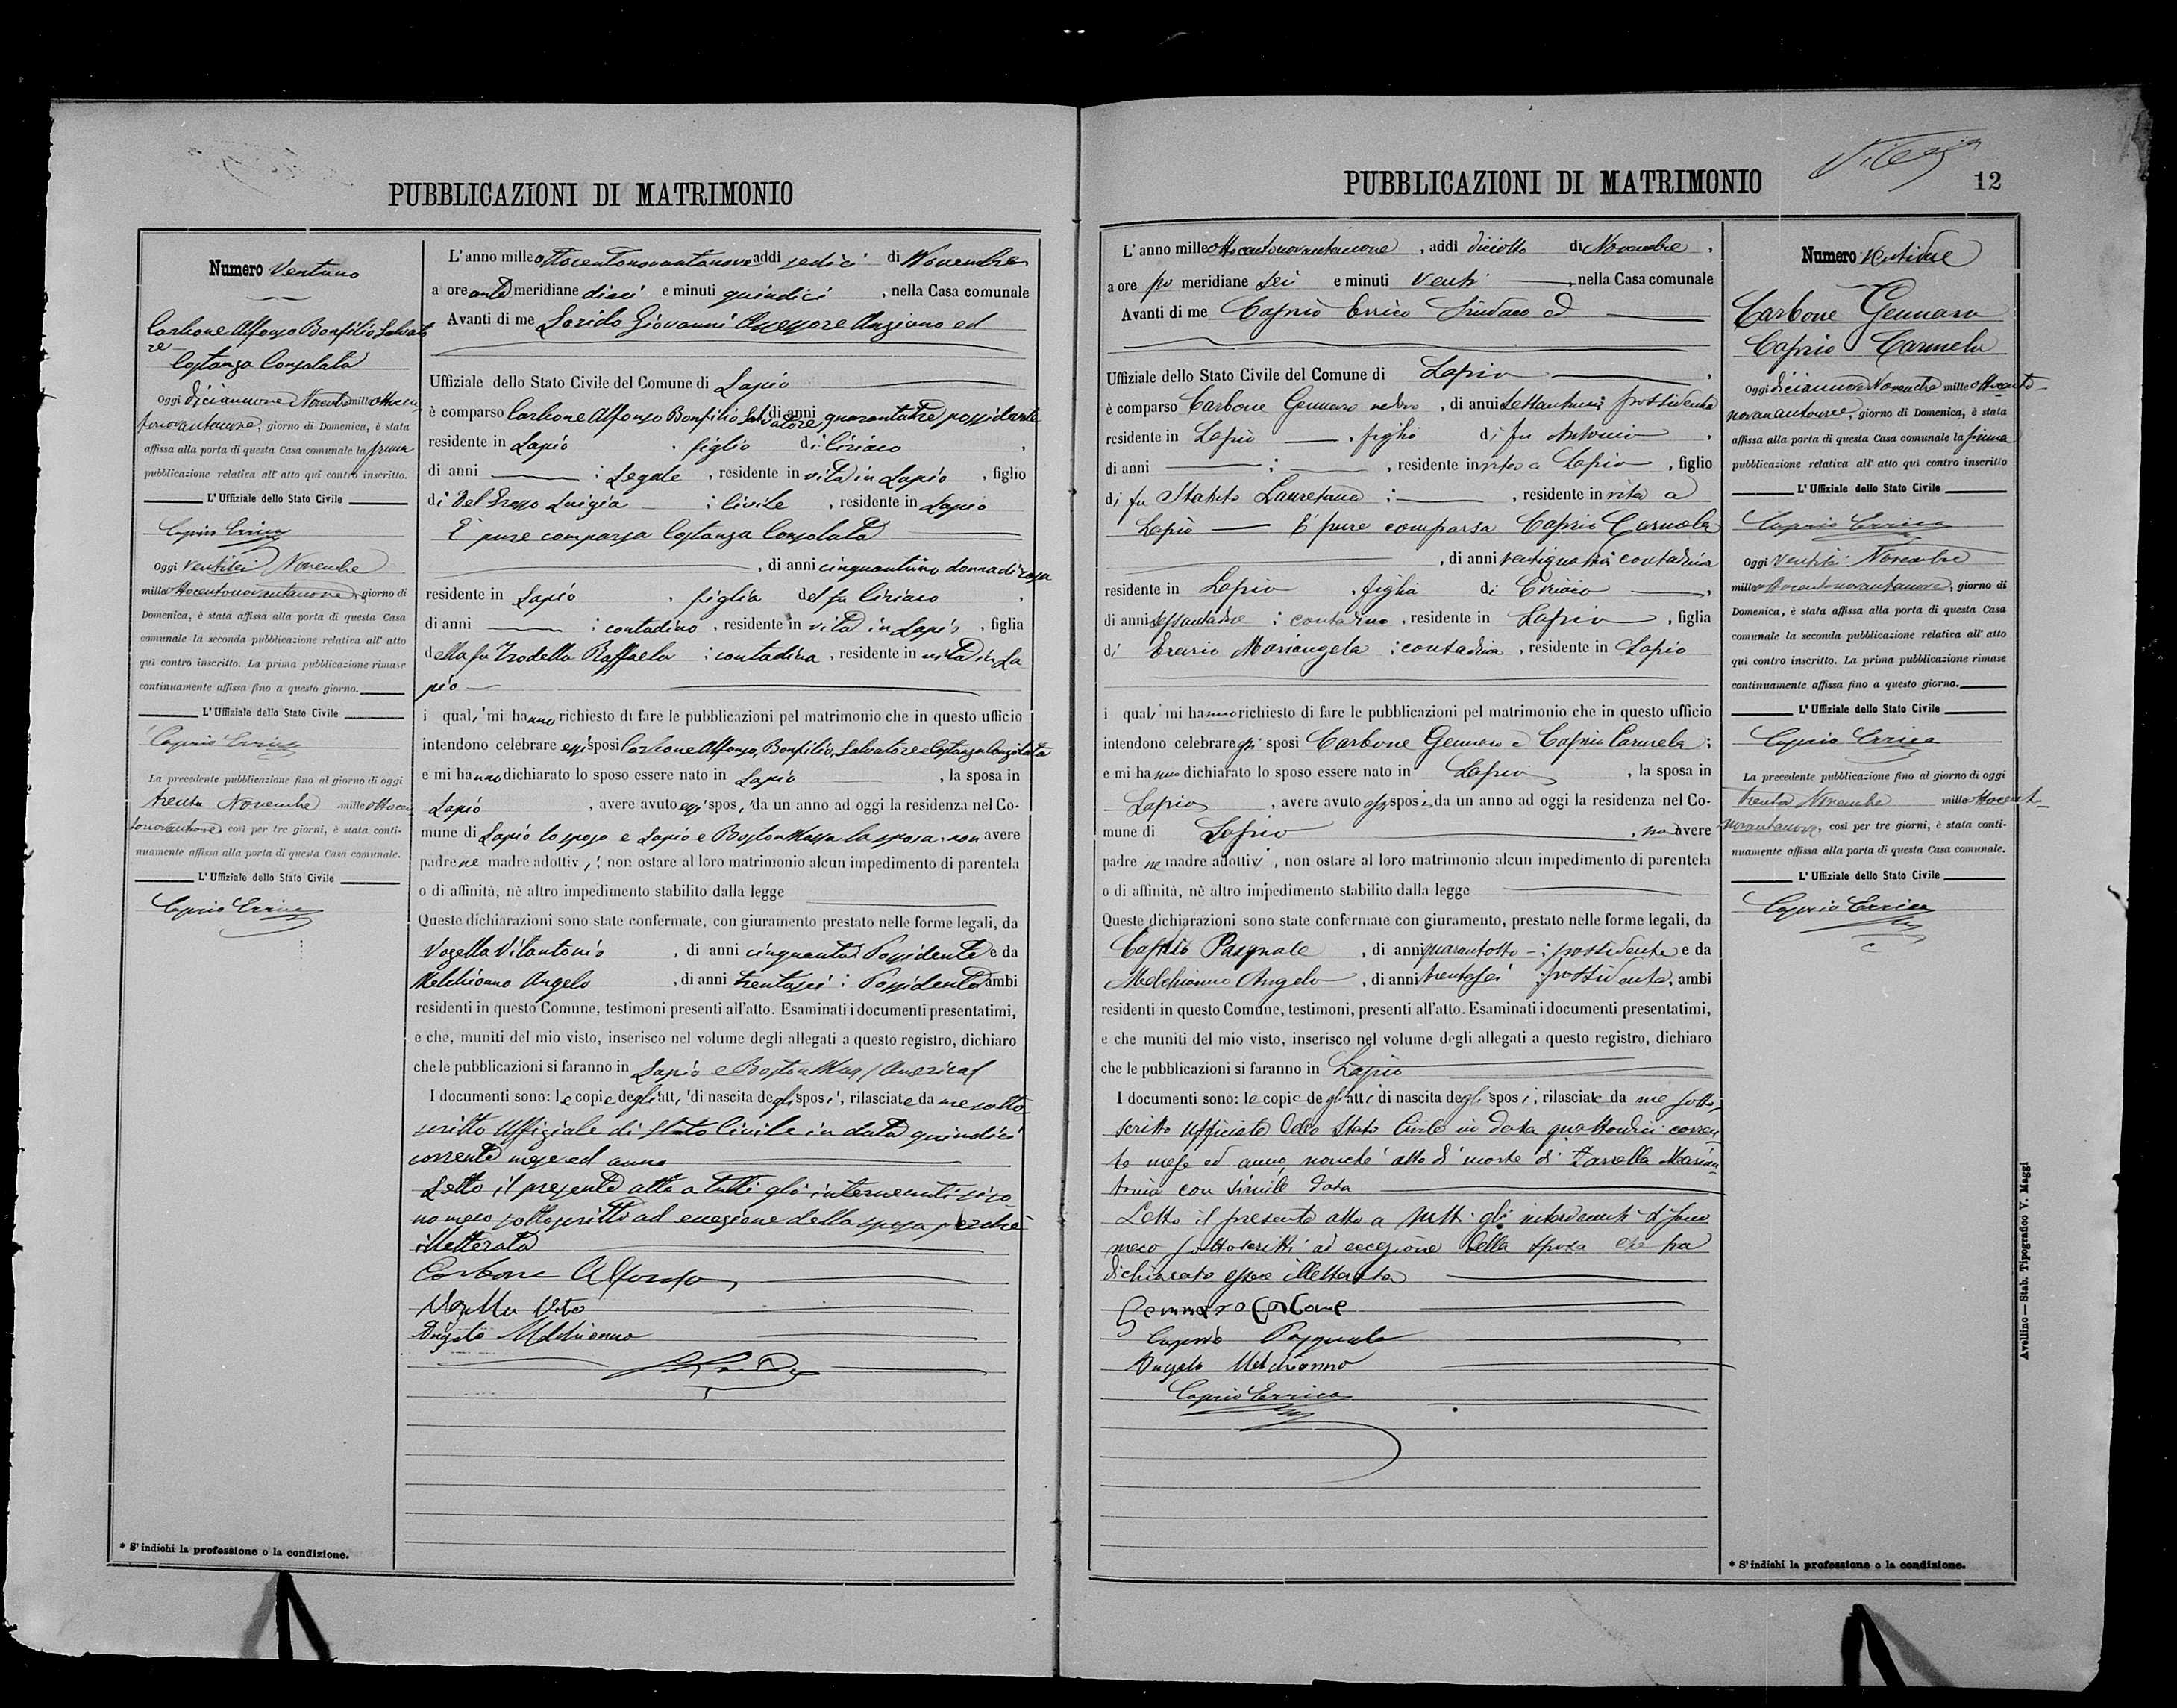 PUBBLICAZIONI DI MATRIMONIO
Numero Ventuno
Carbone Alfonso Bonfilio Salvato
re
Costanza Consolata
Oggi diciannove Novembre mille ottocen
tonovantanove, giorno di Domenica, è stata
affissa alla porta di questa Casa comunale la prima
pubblicazione relativa all' atto qui contro inscritto.
L' Uffiziale dello Stato Civile
Caprio Errico
Oggi Ventisei Novembre
mille ottocentonovantanove, giorno di
Domenica, è stata affissa alla porta di questa Casa
comunale la seconda pubblicazione relativa all' atto
qui contro inscritto. La prima pubblicazione rimase
continuamente affissa fino a questo giorno.
L' Uffiziale dello Stato Civile
Caprio Errico
La precedente pubblicazione fino al giorno di oggi
trenta Novembre mille ottocen
tonovantanove così per tre giorni, è stata conti-
nuamente affissa alla porta di questa Casa comunale.
L' Uffiziale dello Stato Civile
Caprio Errico
* S' indichi la professione o la condizione.
L' anno mille ottocentonovantanove addì sedici di Novembre
a ore ante meridiane dieci e minuti quindici, nella Casa comunale
Avanti di me Giovanni Assessore Anziano ed
Uffiziale dello Stato Civile del Comune di Lapio
è comparso Carbone Alfonso Bonfilio Salvatore, di anni quarantatre possidente
residente in Lapio, figlio di Ciriaco,
di anni ; Legale, residente in vita in Lapio, figlio
di Del Grosso Luigia ; civile, residente in Lapio
È pure comparsa Costanza Consolata
, di anni cinquantuno donna di casa
residente in Lapio, figlia del fu Ciriaco,
di anni ; contadino, residente in vita in Lapio, figlia
della fu Trodella Raffaela ; contadina, residente in vita in La
pio
i quali mi hanno richiesto di fare le pubblicazioni pel matrimonio che in questo ufficio
intendono celebrare essi sposi Carbone Alfonso, Bonfilio, Salvatore e Costanza Consolata
e mi hanno dichiarato lo sposo essere nato in Lapio, la sposa in
Lapio, avere avuto essi sposi, da un anno ad oggi la residenza nel Co-
mune di Lapio lo sposo e Lapio e Boston Mass la sposa, non avere
padre ne madre adottivi, non ostare al loro matrimonio alcun impedimento di parentela
o di affinità, nè altro impedimento stabilito dalla legge
Queste dichiarazioni sono state confermate, con giuramento prestato nelle forme legali, da
Vozella Vitantonio, di anni cinquanta Possidente e da
Melchionno Angelo, di anni trentasei ; Possidente ambi
residenti in questo Comune, testimoni presenti all'atto. Esaminati i documenti presentatimi,
e che, muniti del mio visto, inserisco nel volume degli allegati a questo registro, dichiaro
che le pubblicazioni si faranno in Lapio e Boston Mass (America)
I documenti sono: le copie degli atti di nascita degli sposi, rilasciate da me sotto
scritto Uffiziale di Stato Civile in data quindici
corrente mese ed anno
Letto il presente atto a tutti gli intervenuti si so
no meco sottoscritti ad eccezione della sposa perchè
illetterata
Carbone Alfonso
Vozella Vito
Angelo Melchionno
PUBBLICAZIONI DI MATRIMONIO
12
L' anno mille ottocentonovantanove, addì diciotto di Novembre,
a ore po meridiane sei e minuti venti, nella Casa comunale
Avanti di me Caprio Errico Sindaco ed
Uffiziale dello Stato Civile del Comune di Lapio,
è comparso Carbone Gennaro vedovo, di anni possidente
residente in Lapio, figlio di fu Antonio,
di anni ; , residente in vita a Lapio, figlio
di fu Statuto Lauretana ; , residente in vita a
Lapio È pure comparsa Caprio Carmela
, di anni contadina
residente in Lapio, figlia di Ciriaco,
di anni ; contadino, residente in Lapio, figlia
di Erario Mariangela ; contadina, residente in Lapio
i quali mi hanno richiesto di fare le pubblicazioni pel matrimonio che in questo ufficio
intendono celebrare essi sposi Carbone Gennaro e Caprio Carmela ;
e mi hanno dichiarato lo sposo essere nato in Lapio, la sposa in
Lapio, avere avuto essi sposi, da un anno ad oggi la residenza nel Co-
mune di Lapio, non avere
padre ne madre adottivi, non ostare al loro matrimonio alcun impedimento di parentela
o di affinità, nè altro impedimento stabilito dalla legge
Queste dichiarazioni sono state confermate con giuramento, prestato nelle forme legali, da
Caprio Pasquale, di anni quarantotto ; possidente e da
Melchionno Angelo, di anni trentasei ; possidente, ambi
residenti in questo Comune, testimoni, presenti all'atto. Esaminati i documenti presentatimi,
e che muniti del mio visto, inserisco nel volume degli allegati a questo registro, dichiaro
che le pubblicazioni si faranno in Lapio
I documenti sono: le copie degli atti di nascita degli sposi, rilasciate da me sotto
scritto Ufficiale dello Stato Civile in data quattordici corren
te mese ed anno, nonchè atto di morte di Zarrella Marian
tonia con simile data
Letto il presente atto a tutti gli intervenuti si sono
meco sottoscritti ad eccezione della sposa che ha
dichiarato essere illetterata
Gennaro Carbone
Caprio Pasquale
Angelo Melchionno
Caprio Errico
Numero Ventidue
Carbone Gennaro
Caprio Carmela
Oggi diciannove Novembre mille ottocento
novantanove, giorno di Domenica, è stata
affissa alla porta di questa Casa comunale la prima
pubblicazione relativa all' atto qui contro inscritto
L' Uffiziale dello Stato Civile
Caprio Errico
Oggi Ventisei Novembre
mille ottocentonovantanove, giorno di
Domenica, è stata affissa alla porta di questa Casa
comunale la seconda pubblicazione relativa all' atto
qui contro inscritto. La prima pubblicazione rimase
continuamente affissa fino a questo giorno.
L' Uffiziale dello Stato Civile
Caprio Errico
La precedente pubblicazione fino al giorno di oggi
trenta Novembre mille ottocento
novantanove, così per tre giorni, è stata conti-
nuamente affissa alla porta di questa Casa comunale.
L' Uffiziale dello Stato Civile
Caprio Errico
* S' indichi la professione o la condizione.
Avellino — Stab. Tipografico V. Maggi